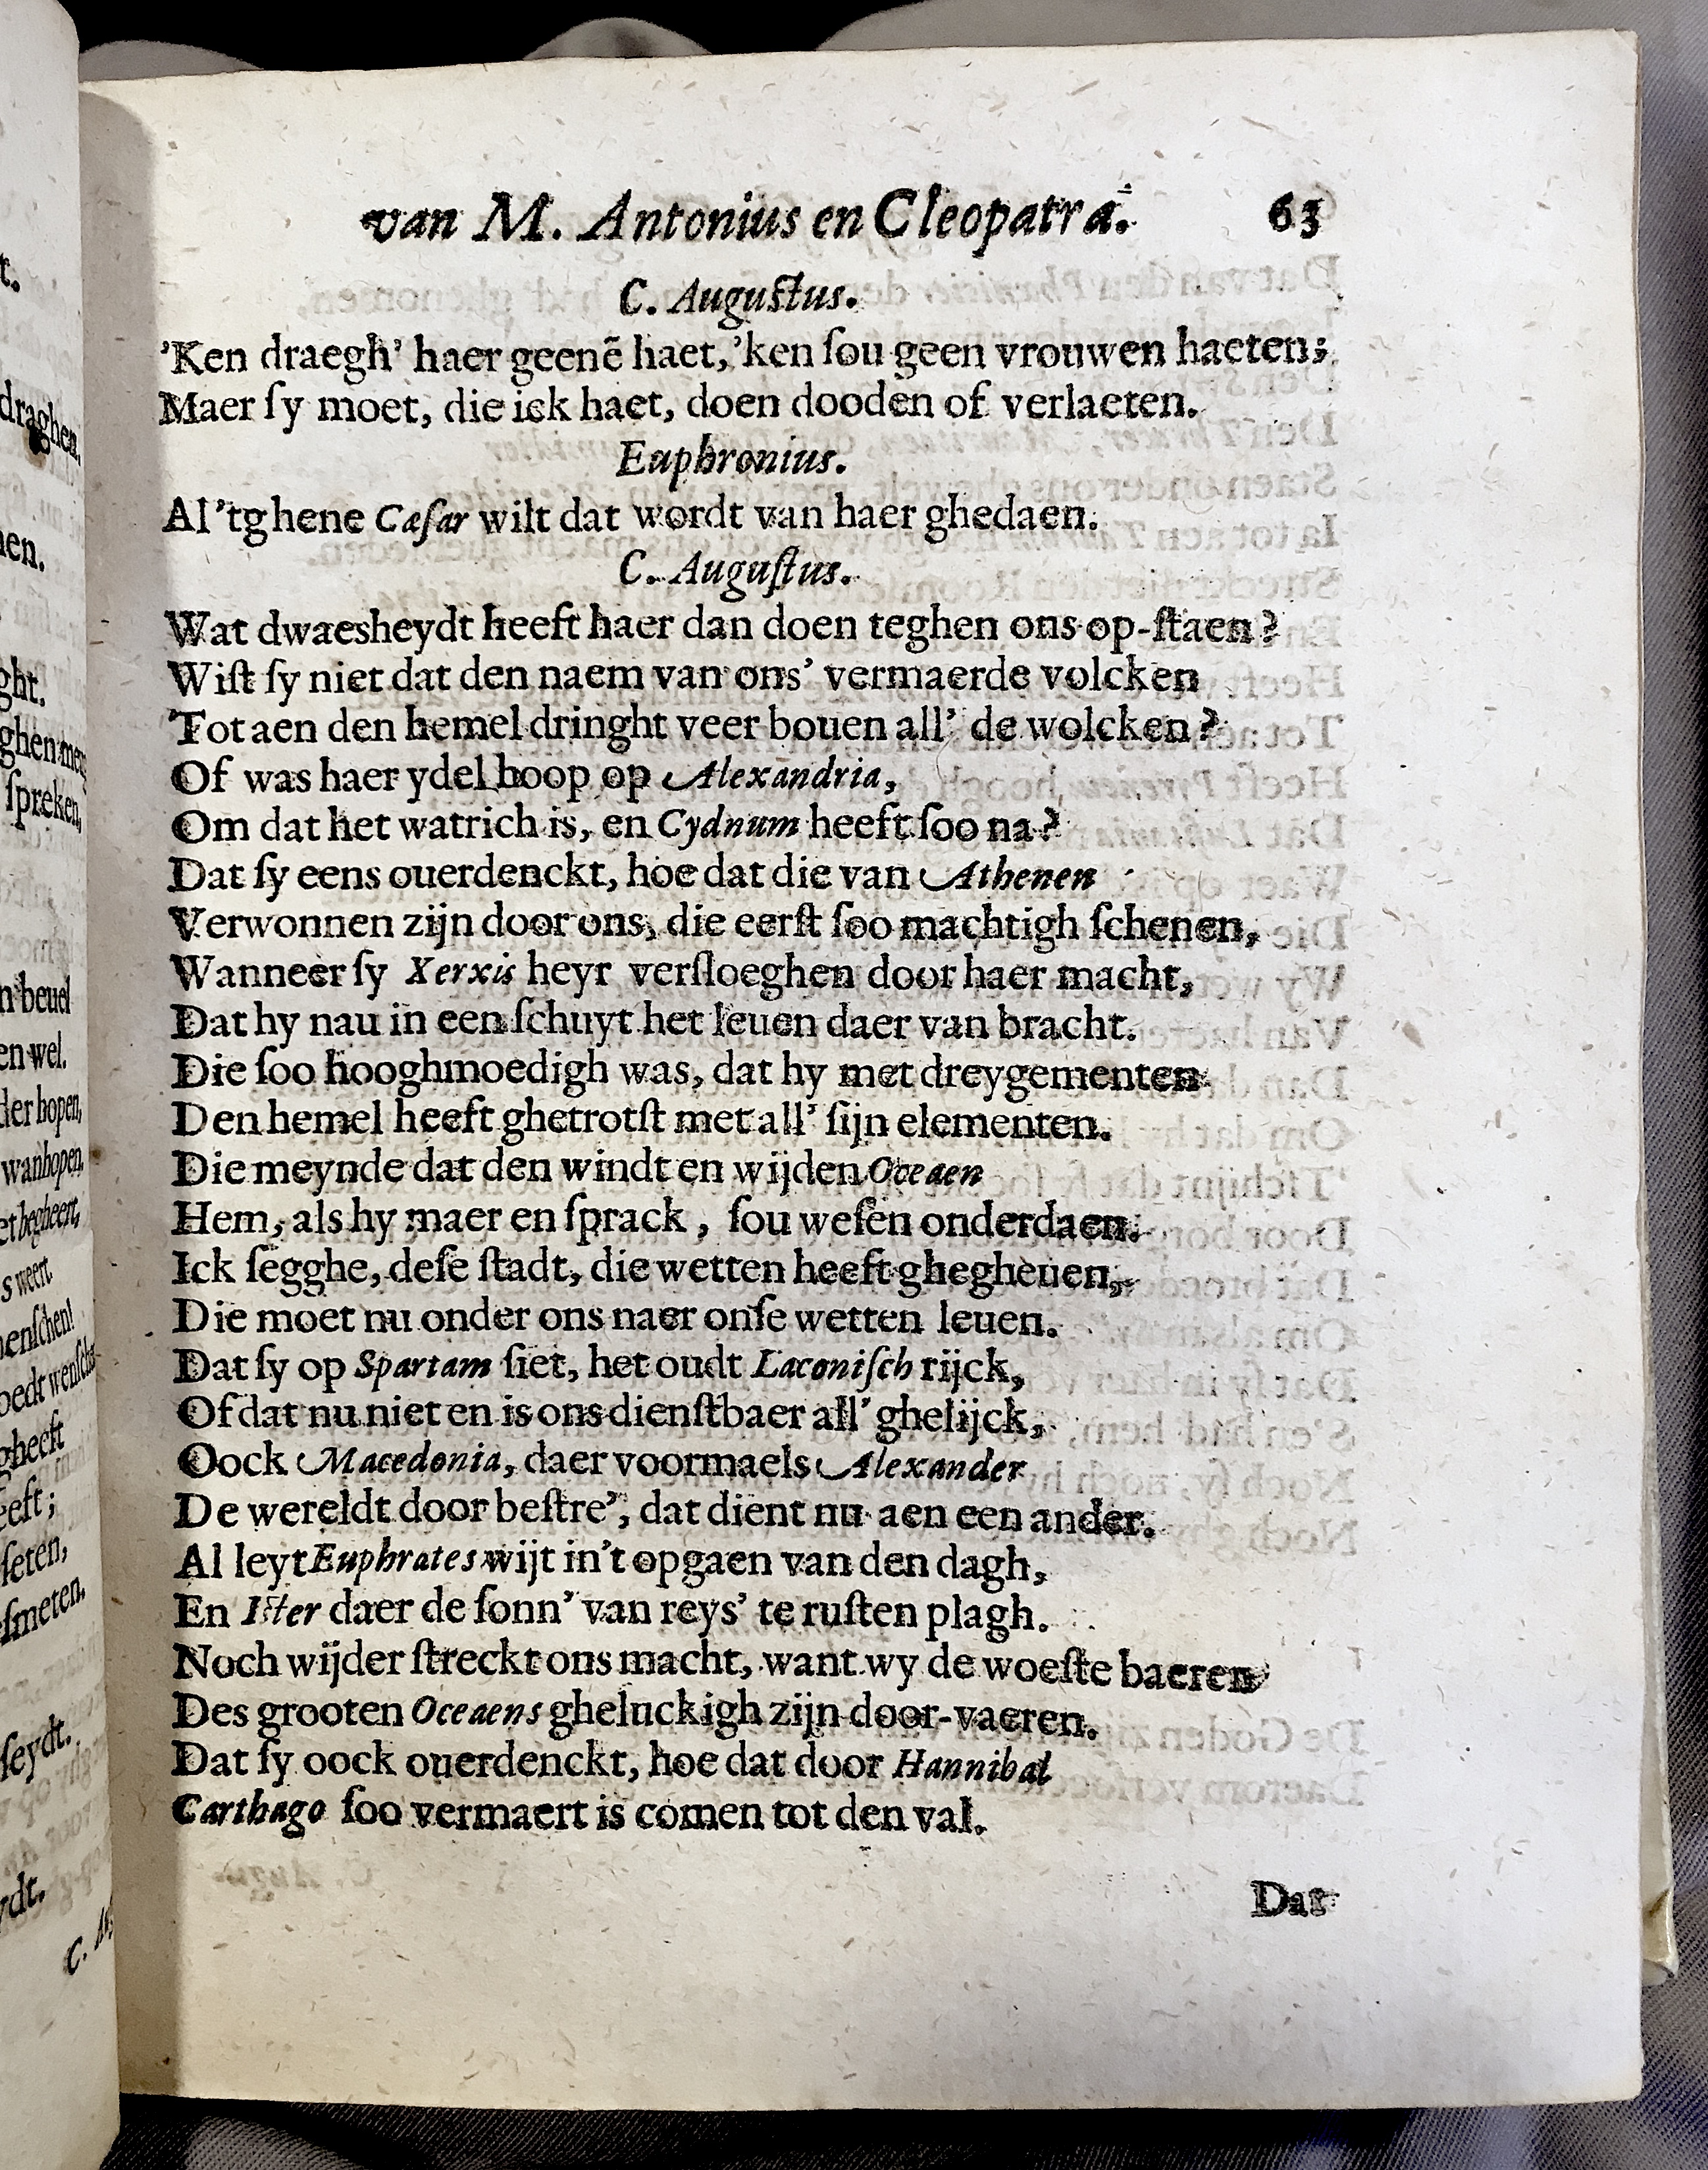 van M. Antonius en Cleopatra. 63
C. Auguſtus.
'Ken draegh' haer geenē haet, 'ken ſou geen vrouwen haeten;
Maer ſy moet, die ick haet, doen dooden of verlaeten.
Euphronius.
Al 'tghene Cæſar wilt dat wordt van haer ghedaen.
C. Auguſtus.
Wat dwaesheydt heeft haer dan doen teghen ons op-ſtaen?
Wiſt ſy niet dat den naem van ons' vermaerde volcken
Tot aen den hemel dringht veer bouen all' de wolcken?
Of was haer ydel hoop op Alexandria,
Om dat het watrich is, en Cydnum heeft ſoo na?
Dat ſy eens ouerdenckt, hoe dat die van Athenen
Verwonnen zijn door ons, die eerſt ſoo machtigh ſchenen,
Wanneer ſy Xerxis heyr verſloeghen door haer macht,
Dat hy nau in een ſchuyt het leuen daer van bracht.
Die ſoo hooghmoedigh was, dat hy met dreygementen
Den hemel heeft ghetrotſt met all' ſijn elementen.
Die meynde dat den windt en wijden Oceaen
Hem, als hy maer en ſprack, ſou weſen onderdaen.
Ick ſegghe, deſe ſtadt, die wetten heeft ghegheuen,
Die moet nu onder ons naer onſe wetten leuen.
Dat ſy op Spartam ſiet, het oudt Laconiſch rijck,
Of dat nu niet en is ons dienſtbaer all' ghelijck,
Oock Macedonia, daer voormaels Alexander
De wereldt door beſtre', dat dient nu aen een ander.
Al leyt Euphrates wijt in't opgaen van den dagh,
En Iſter daer de ſonn' van reys' te ruſten plagh.
Noch wijder ſtreckt ons macht, want wy de woeſte baeren
Des grooten Oceaens gheluckigh zijn door-vaeren.
Dat ſy oock ouerdenckt, hoe dat door Hannibal
Carthago ſoo vermaert is comen tot den val.
Dat